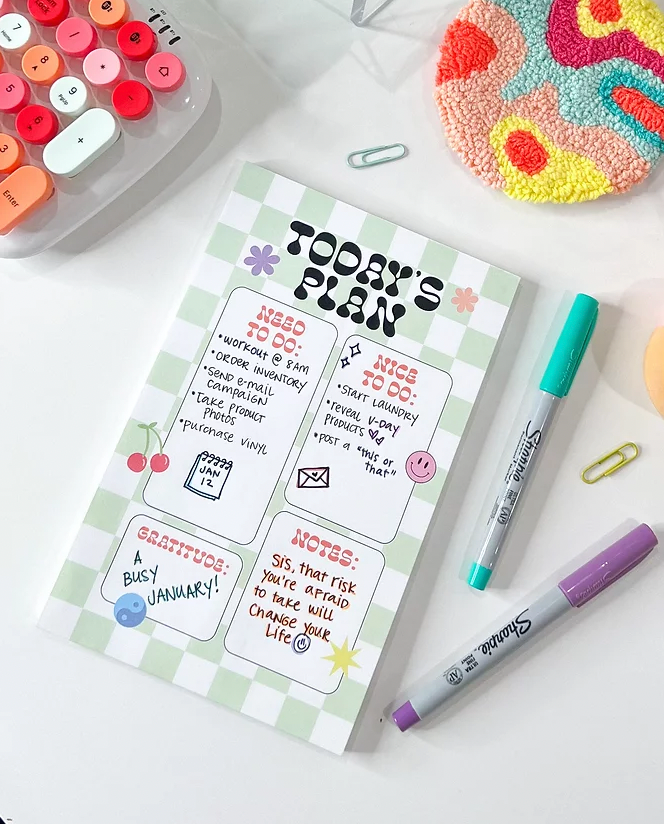 TODAY'S
PLAN
NEED
TO DO:
• WORKOUT @ 8AM
• ORDER INVENTORY
• SEND E-MAIL
CAMPAIGN
• TAKE PRODUCT
PHOTOS
• PURCHASE VINYL
JAN
12
NICE
TO DO:
• START LAUNDRY
• REVEAL V-DAY
PRODUCTS
• POST A "THIS OR
THAT"
GRATITUDE:
A
BUSY
JANUARY!
NOTES:
Sis, that risk
you're afraid
to take will
change your
Life
Sharpie
Sharpie
ULTRA
FINE
POINT
AP
7
Home
8
9
PgUp
5
6
3
/
*
-
+
Enter